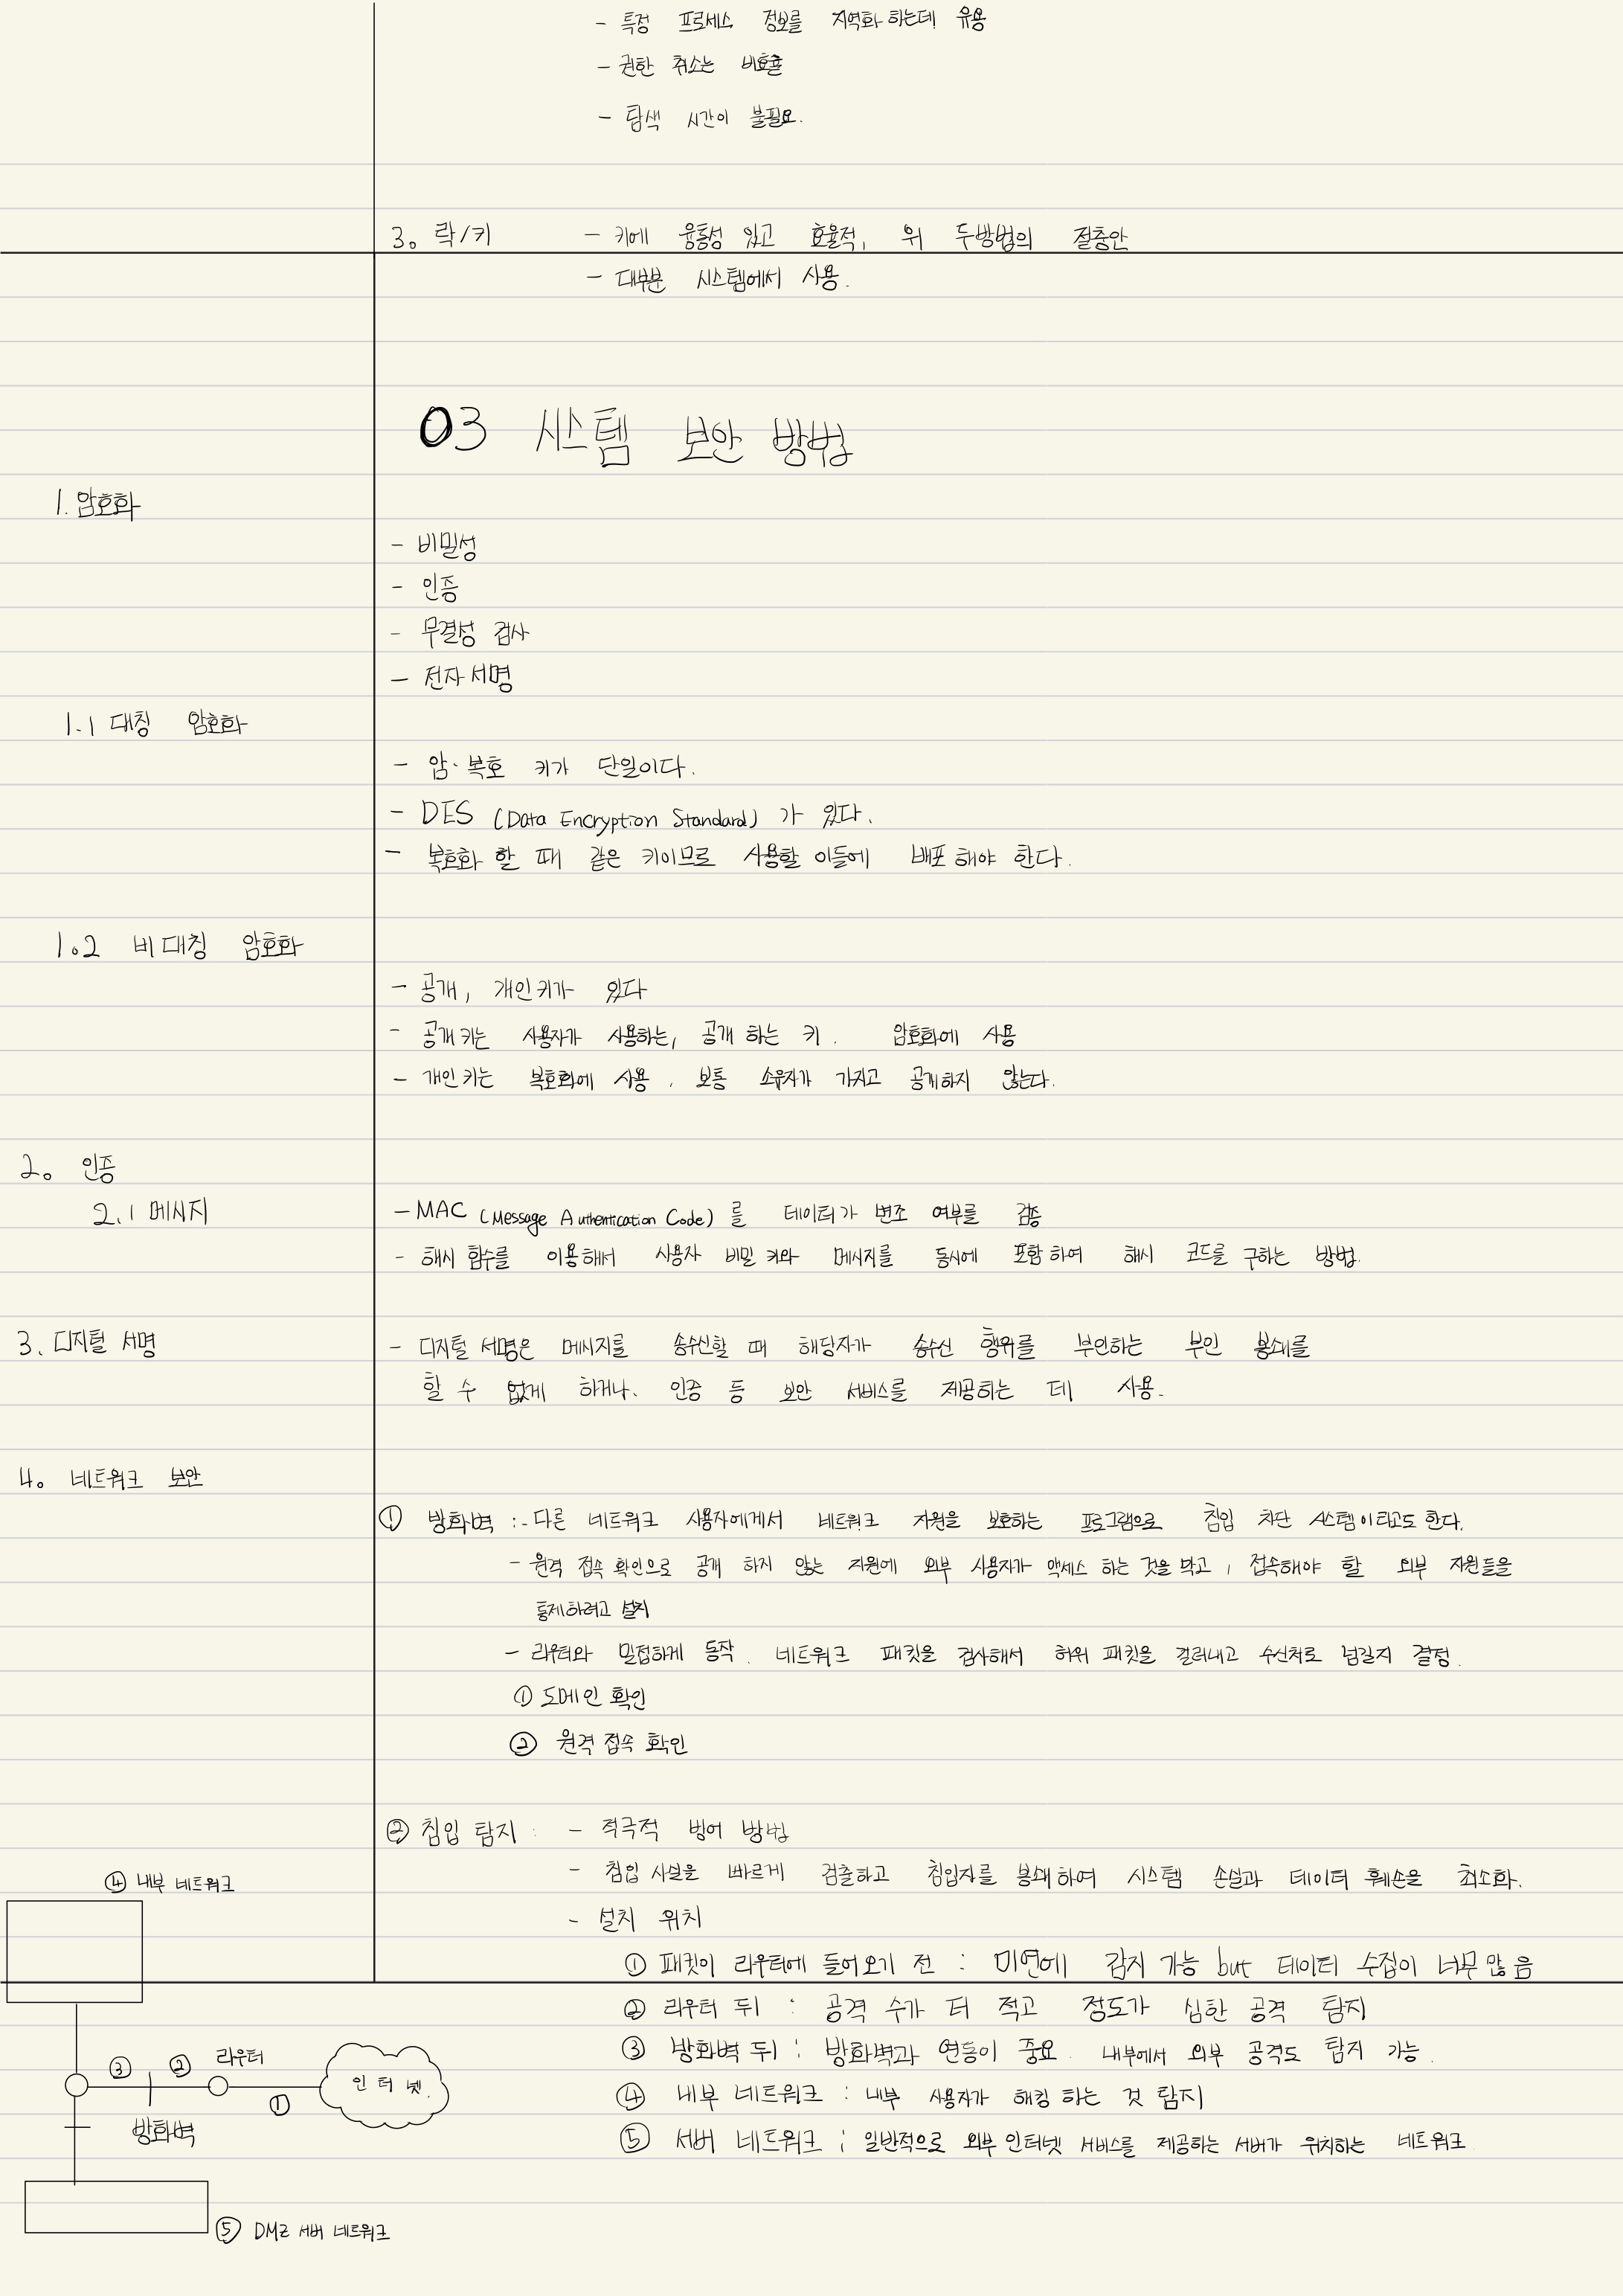 - 특정 프로세스 정보를 지역화 하는데 유용
- 권한 취소는 비효율
- 탐색 시간이 불필요.
3. 락/키 - 키에 융통성 있고 효율적, 위 두방법의 절충안
- 대부분 시스템에서 사용.
03 시스템 보안 방법
1. 암호화
- 비밀성
- 인증
- 무결성 검사
- 전자서명
1.1 대칭 암호화
- 암·복호 키가 단일이다.
- DES (Data Encryption Standard) 가 있다.
- 복호화 할 때 같은 키이므로 사용할 이들에 배포 해야 한다.
1.2 비대칭 암호화
- 공개, 개인키가 있다
- 공개키는 사용자가 사용하는, 공개 하는 키. 암호화에 사용
- 개인키는 복호화에 사용. 보통 소유자가 가지고 공개하지 않는다.
2. 인증
2.1 메시지
- MAC (Message Authentication Code) 를 데이터가 변조 여부를 검증
- 해시 함수를 이용해서 사용자 비밀 키와 메시지를 동시에 포함하여 해시 코드를 구하는 방법.
3. 디지털 서명
- 디지털 서명은 메시지를 송수신할 때 해당자가 송수신 행위를 부인하는 부인 봉쇄를
할 수 없게 하거나, 인증 등 보안 서비스를 제공하는 데 사용.
4. 네트워크 보안
① 방화벽 : - 다른 네트워크 사용자에게서 네트워크 자원을 보호하는 프로그램으로 침입 차단 시스템이라고도 한다.
- 원격 접속 확인으로 공개 하지 않는 자원에 외부 사용자가 액세스 하는 것을 막고, 접속해야 할 외부 자원들을
통제하려고 설치
- 라우터와 밀접하게 동작. 네트워크 패킷을 검사해서 허위 패킷을 걸러내고 수신처로 넘길지 결정.
① 도메인 확인
② 원격 접속 확인
② 침입 탐지 : - 적극적 방어 방법
- 침입 사실을 빠르게 검출하고 침입자를 봉쇄하여 시스템 손실과 데이터 훼손을 최소화.
- 설치 위치
① 패킷이 라우터에 들어오기 전 : 미연에 감지 가능 but 데이터 수집이 너무 많음
② 라우터 뒤 : 공격 수가 더 적고 정도가 심한 공격 탐지
③ 방화벽 뒤 : 방화벽과 연동이 중요. 내부에서 외부 공격도 탐지 가능.
④ 내부 네트워크 : 내부 사용자가 해킹 하는 것 탐지
⑤ 서버 네트워크 : 일반적으로 외부 인터넷 서비스를 제공하는 서버가 위치하는 네트워크
④ 내부 네트워크
③ ② 라우터
① 인터넷.
방화벽
⑤ DMZ 서버 네트워크